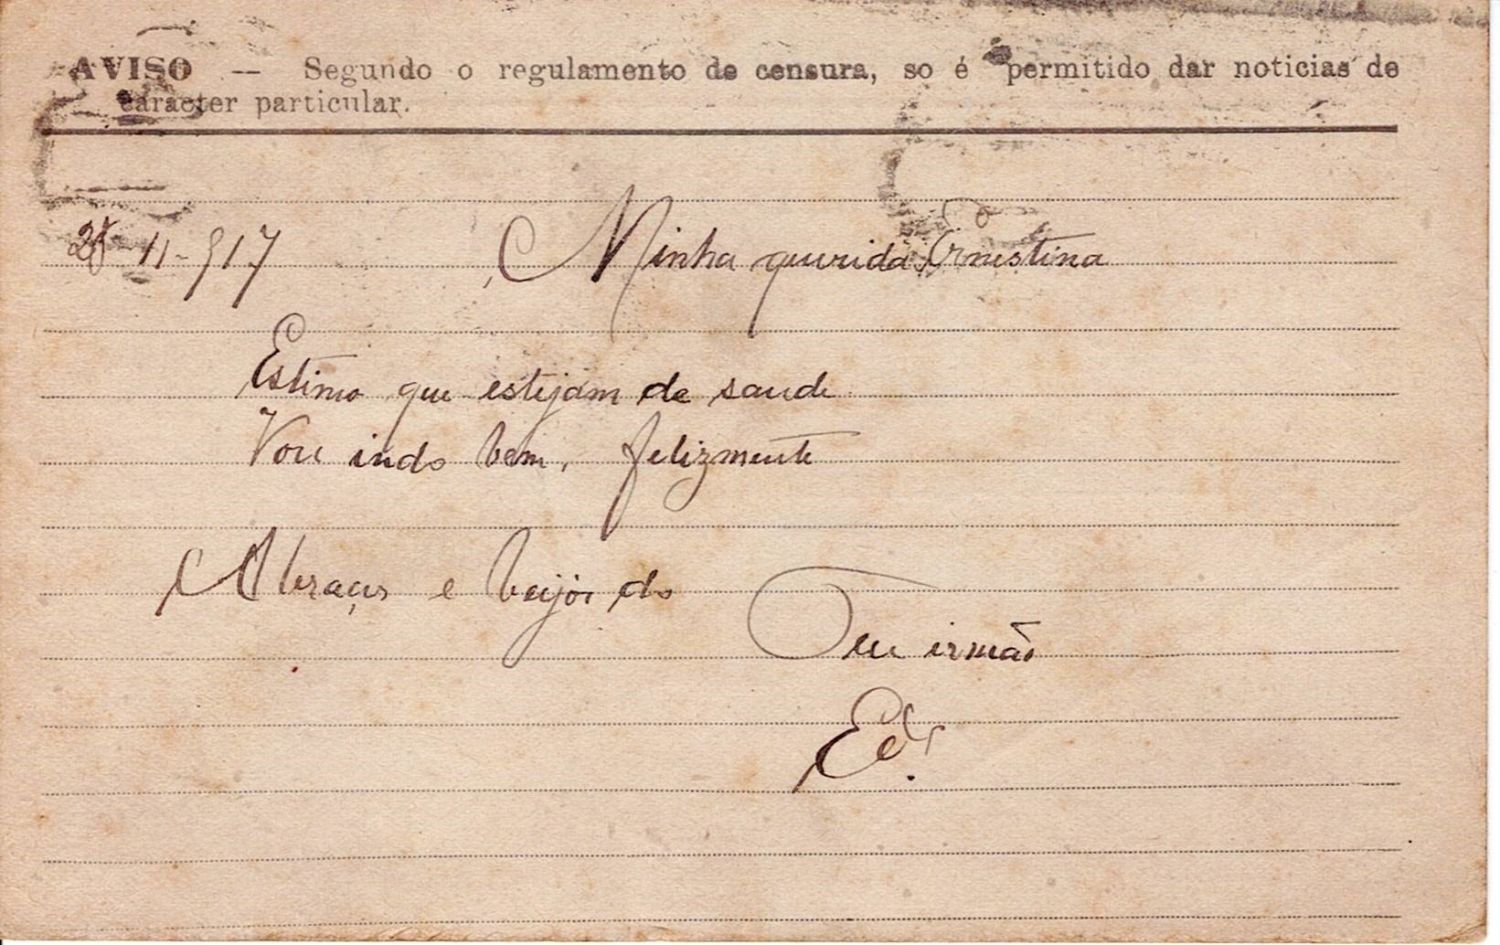 AVISO — Segundo o regulamento de censura, so é permitido dar noticias de
caracter particular.
11-917 Minha querida Ernestina
Estimo que estejam de saude
Vou indo bem, felizmente
Abraços e beijos do
Teu irmão